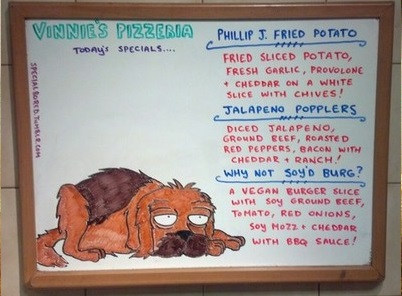 VINNIE'S PIZZERIA
TODAY'S SPECIALS....
SPECIALBORED.TUMBLR.COM
PHILLIP J. FRIED POTATO
FRIED SLICED POTATO,
FRESH GARLIC, PROVOLONE
+ CHEDDAR ON A WHITE
SLICE WITH CHIVES!
JALAPENO POPPLERS
DICED JALAPENO,
GROUND BEEF, ROASTED
RED PEPPERS, BACON WITH
CHEDDAR + RANCH!
WHY NOT SOY'D BURG?
A VEGAN BURGER SLICE
WITH SOY GROUND BEEF,
TOMATO, RED ONIONS,
SOY MOZZ + CHEDDAR
WITH BBQ SAUCE!